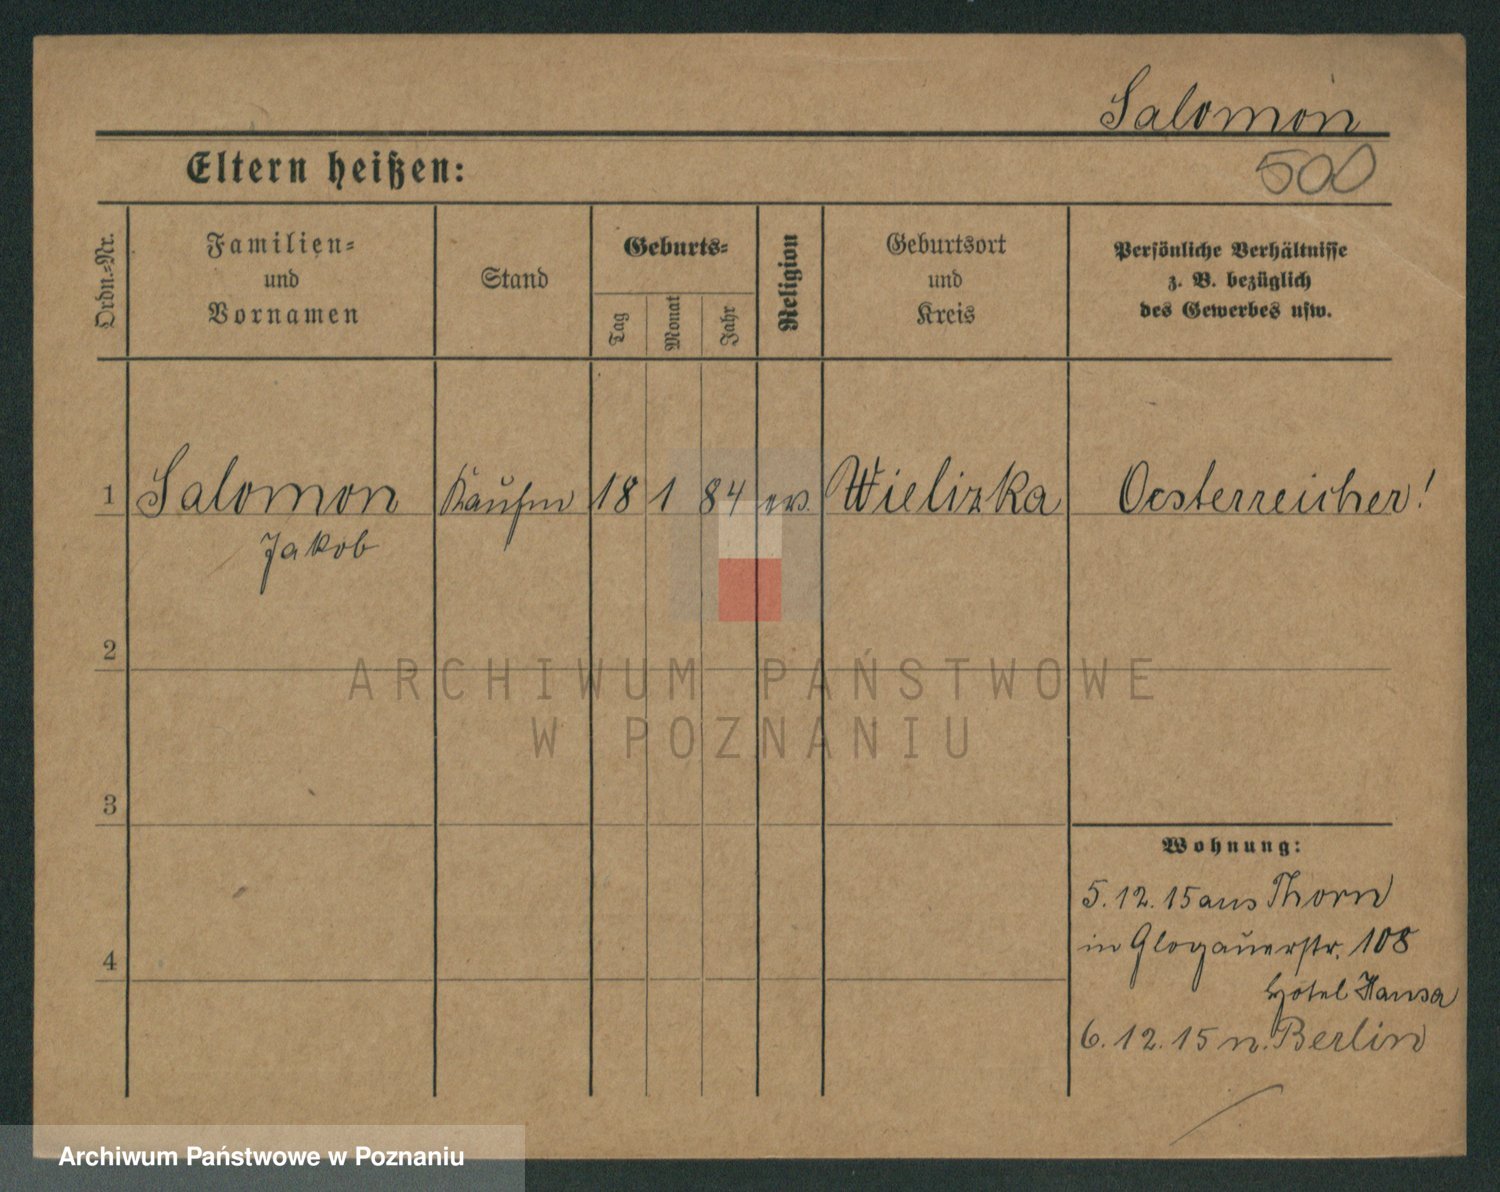 Salomon
Eltern heißen:
500
Ordn.-Nr.
Familien-
und
Vornamen
Stand
Geburts-
Tag
Monat
Jahr
Religion
Geburtsort
und
Kreis
Persönliche Verhältnisse
z. B. bezüglich
des Gewerbes usw.
1 Salomon Kaufm 18 1 84 ev. Wielizka Oesterreicher!
Jakob
2
3
4
Wohnung:
5.12.15 aus Thorn
in Glogauerstr. 108
Hotel Hansa
6.12.15 n. Berlin
ARCHIWUM PAŃSTWOWE
W POZNANIU
Archiwum Państwowe w Poznaniu